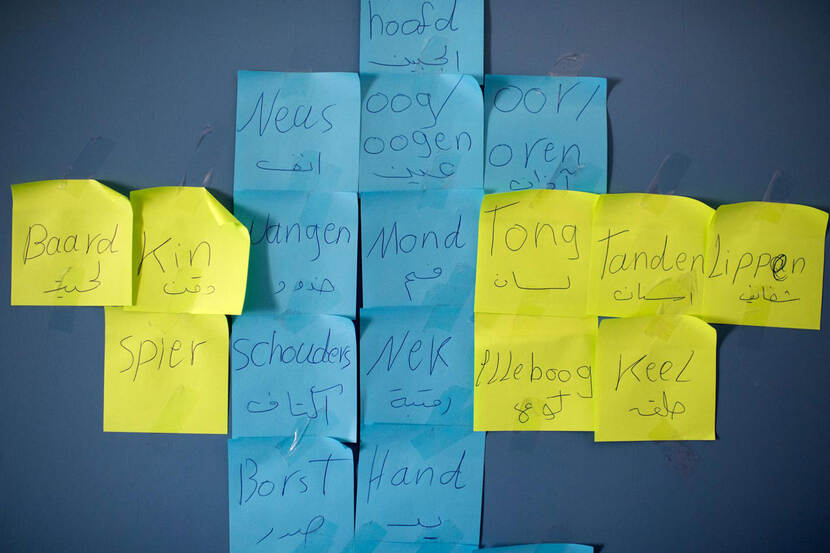 hoofd
الجبين
Neus
انف
oog/
oogen
عين
oor/
oren
آذان
Baard
لحية
Kin
دقت
Wangen
خدود
Mond
فم
Tong
لسان
Tanden
اسنان
Lippen
شفايف
Spier
Schouders
أكتاف
Nek
رقبة
Elleboog
كوع
Keel
حلقه
Borst
صدر
Hand
يد